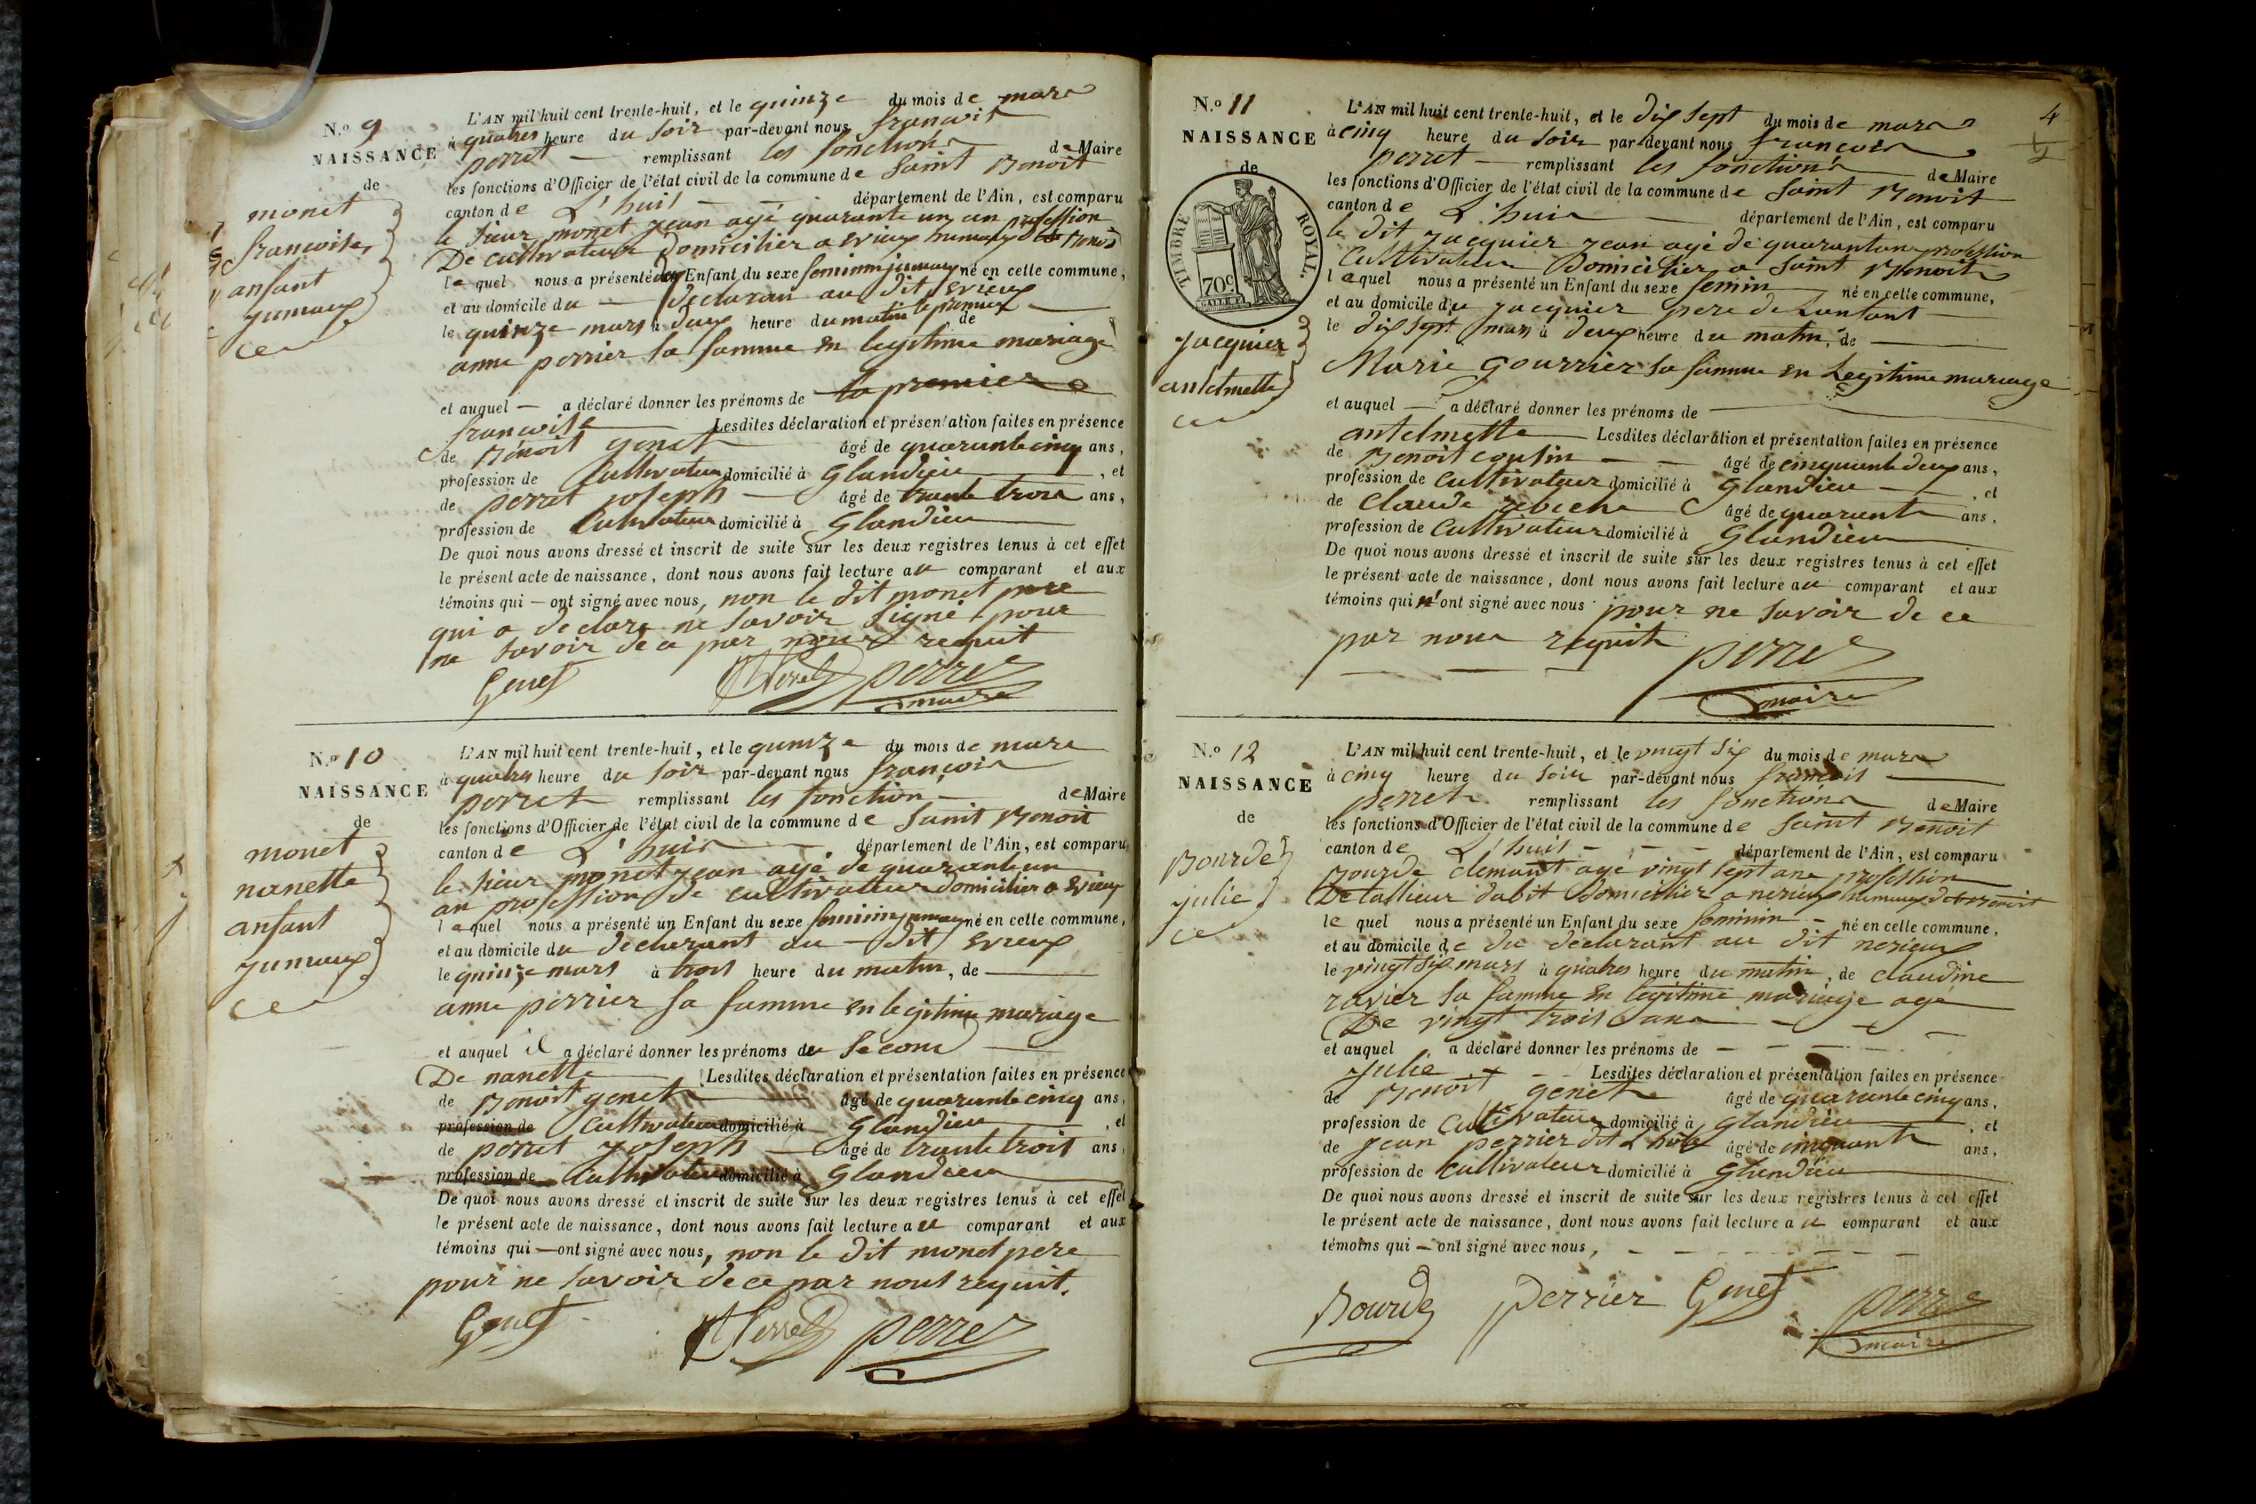 N.o 9
NAISSANCE
de
monet
francoise
anfant
jumaux
L'AN mil huit cent trente-huit, et le quinze du mois de mars
à quatres heure du soir par-devant nous francois
perret remplissant les fonctions de Maire
les fonctions d'Officier de l'état civil de la commune de Saint Benoit
canton de L'huis département de l'Ain, est comparu
le sieur monet jean agé quarante un an profession
De cultivateur Domicilier a Evieux
le quel nous a présenté Enfant du sexe feminin jumaux né en cette commune,
et au domicile du declaran au dit Evieux
le quinze mars à deux heure du matin le premier de
anne perrier sa famme en legitime mariage
et auquel — a déclaré donner les prénoms de la premiere
francoise Lesdites déclaration et présentation faites en présence
de Benoit genet âgé de quarante cinq ans,
profession de Cultivateur domicilié à Glandieu, et
de perret joseph âgé de trante trois ans,
profession de Cultivateur domicilié à Glandieu
De quoi nous avons dressé et inscrit de suite sur les deux registres tenus à cet effet
le présent acte de naissance, dont nous avons fait lecture au comparant et aux
témoins qui — ont signé avec nous, non le dit monet pere
qui a declare ne savoir signé pour
ne savoir de ce par nous requit
Genet Perret perret
maire
N.o 10
NAISSANCE
de
monet
nanette
anfant
jumaux
L'AN mil huit cent trente-huit, et le quinze du mois de mars
à quatres heure du soir par-devant nous françois
perret remplissant les fonction de Maire
les fonctions d'Officier de l'état civil de la commune de Saint Benoit
canton de L'huis département de l'Ain, est comparu
le sieur monet jean agé de quarante un
an profession de cultivateur domicilier a Evieux
le quel nous a présenté un Enfant du sexe feminin jumaux né en cette commune,
et au domicile du declarant au dit Evieux
le quinze mars à trois heure du matin, de
anne perrier sa famme en legitime mariage
et auquel il a déclaré donner les prénoms de second
De nanette Lesdites déclaration et présentation faites en présence
de Benoit genet âgé de quarante cinq ans,
profession de Cultivateur domicilié à Glandieu, et
de perret joseph âgé de trante trois ans,
profession de Cultivateur domicilié à Glandieu
De quoi nous avons dressé et inscrit de suite sur les deux registres tenus à cet effet
le présent acte de naissance, dont nous avons fait lecture au comparant et aux
témoins qui — ont signé avec nous, non le dit monet pere
pour ne savoir de ce par nous requit.
Genet Perret perret
4
N.o 11
NAISSANCE
de
TIMBRE ROYAL.
70c
jacquier
antelmette
L'AN mil huit cent trente-huit, et le dix sept du mois de mars
à cinq heure du soir par-devant nous françois
perret remplissant les fonctions de Maire
les fonctions d'Officier de l'état civil de la commune de Saint Benoit
canton de L'huis département de l'Ain, est comparu
le dit jacquier jean agé de quarante ans profession
Cultivateur Domicilier a Saint Benoit
le quel nous a présenté un Enfant du sexe femin né en cette commune,
et au domicile du jacquier pere de Lanfant
le dix sept mars à deux heure du matin, de
Marie Gourrier sa famme en Legitime mariage
et auquel — a déclaré donner les prénoms de
antelmette Lesdites déclaration et présentation faites en présence
de Benoit cousin âgé de cinquante deux ans,
profession de Cultivateur domicilié à Glandieu, et
de Claude âgé de quarante ans,
profession de Cultivateur domicilié à Glandieu
De quoi nous avons dressé et inscrit de suite sur les deux registres tenus à cet effet
le présent acte de naissance, dont nous avons fait lecture au comparant et aux
témoins qui n'ont signé avec nous pour ne savoir de ce
par nous requit
perret
maire
N.o 12
NAISSANCE
de
Bourde
julie
L'AN mil huit cent trente-huit, et le vingt six du mois de mars
à cinq heure du soir par-devant nous françois
perret remplissant les fonctions de Maire
les fonctions d'Officier de l'état civil de la commune de Saint Benoit
canton de L'huis département de l'Ain, est comparu
Bourde clemant agé vingt sept ans profession
De tallieur dabit Domicilier a nerieux
le quel nous a présenté un Enfant du sexe feminin né en cette commune,
et au domicile de du declarant au dit nerieux
le vingt six mars à quatres heure du matin, de claudine
ravier sa famme en legitime mariage age
De vingt trois ans
et auquel a déclaré donner les prénoms de
Julie Lesdites déclaration et présentation faites en présence
de Benoit genet âgé de quarante cinq ans,
profession de Cultivateur domicilié à Glandieu, et
de jean perrier dit âgé de cinquante ans,
profession de Cultivateur domicilié à Glandieu
De quoi nous avons dressé et inscrit de suite sur les deux registres tenus à cet effet
le présent acte de naissance, dont nous avons fait lecture au comparant et aux
témoins qui — ont signé avec nous,
Bourde perrier Genet perret
maire